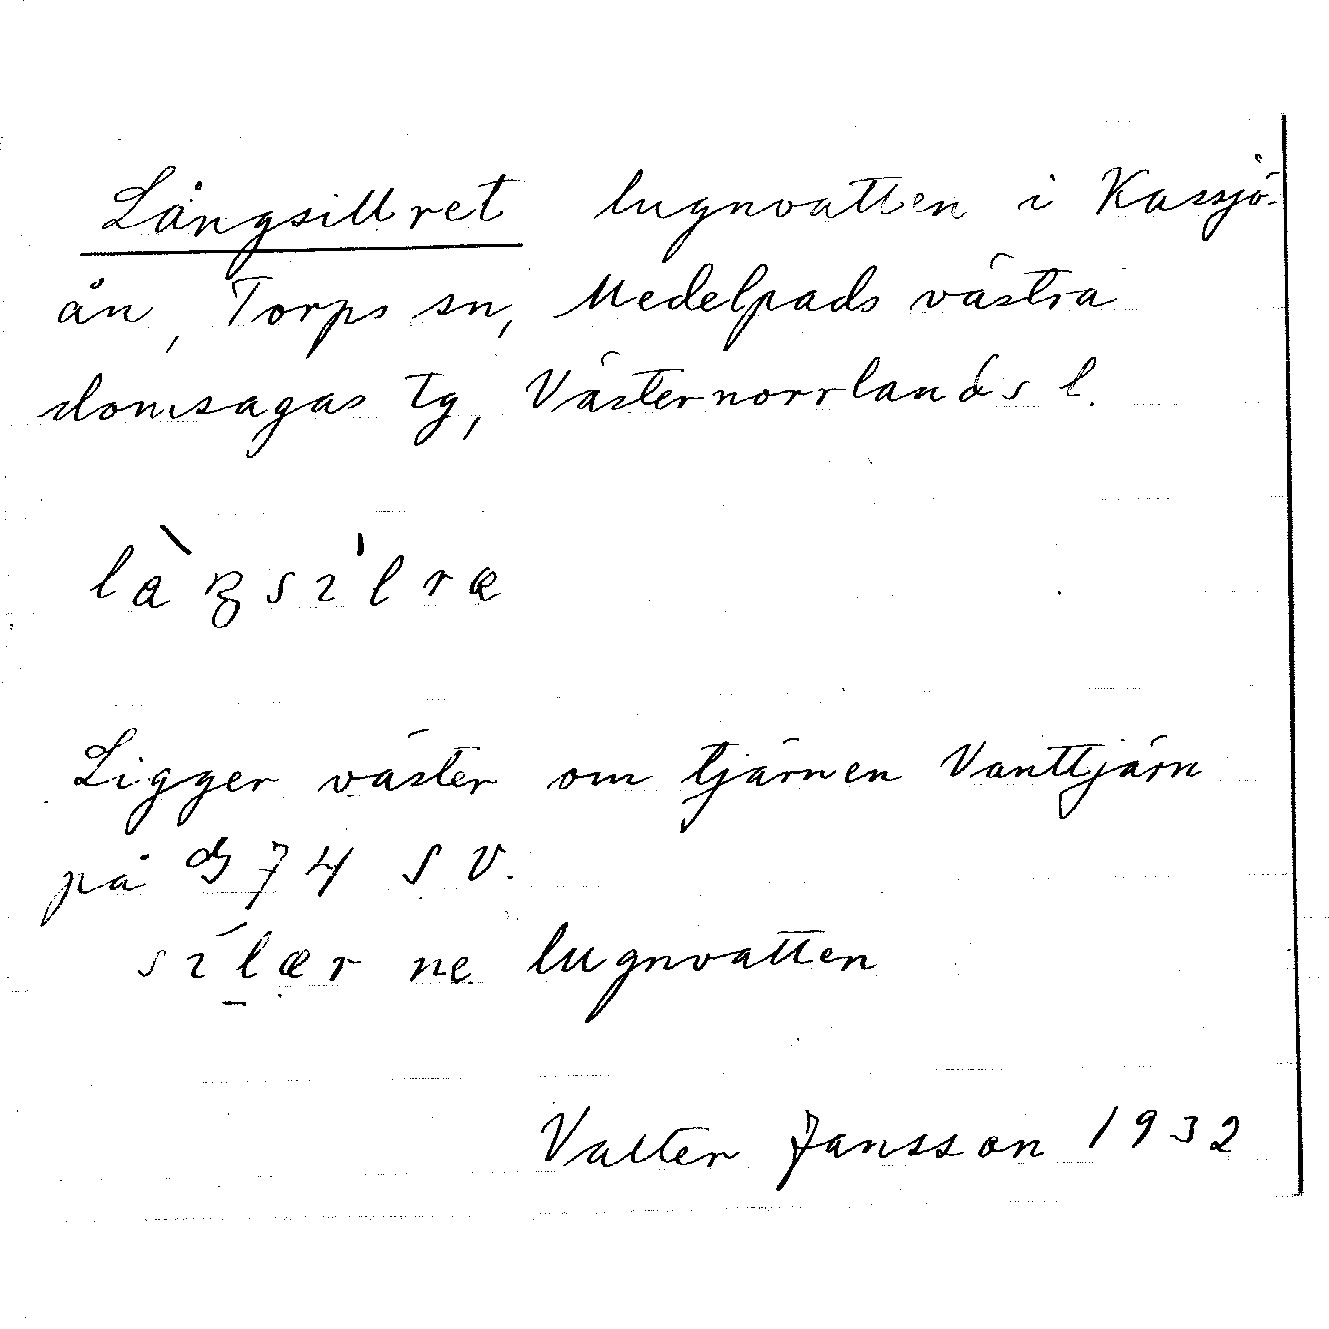 Långsillret lugnvatten i Kassjö-
ån, Torps sn, Medelpads västra
domsagas tg, Västernorrlands l.
Ligger väster om tjärnen Vanttjärn
på 74 SV.
ne. lugnvatten
Valter Jansson 1932